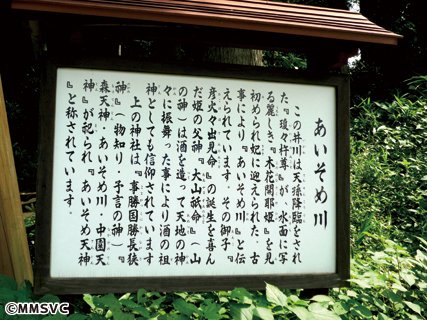 あいそめ川
この小川は天孫降臨をされ
た『瓊々杵尊』が、水面に写
る麗しき『木花開耶姫』を見
初められ妃に迎えられた。古
事により『あいそめ川』と伝
えられています。その御子『
彦火々出見命』の誕生を喜ん
だ姫の父神『大山祇命』(山
の神)は酒を造って天地の神
々に振舞った事により酒の祖
神としても信仰されています
上の神社は、『事勝国勝長狭
神』(物知り・予言の神)『
森天神・あいそめ川・中園天
神』が祀られ『あいそめ天神
』と称されています。
©MMSVC